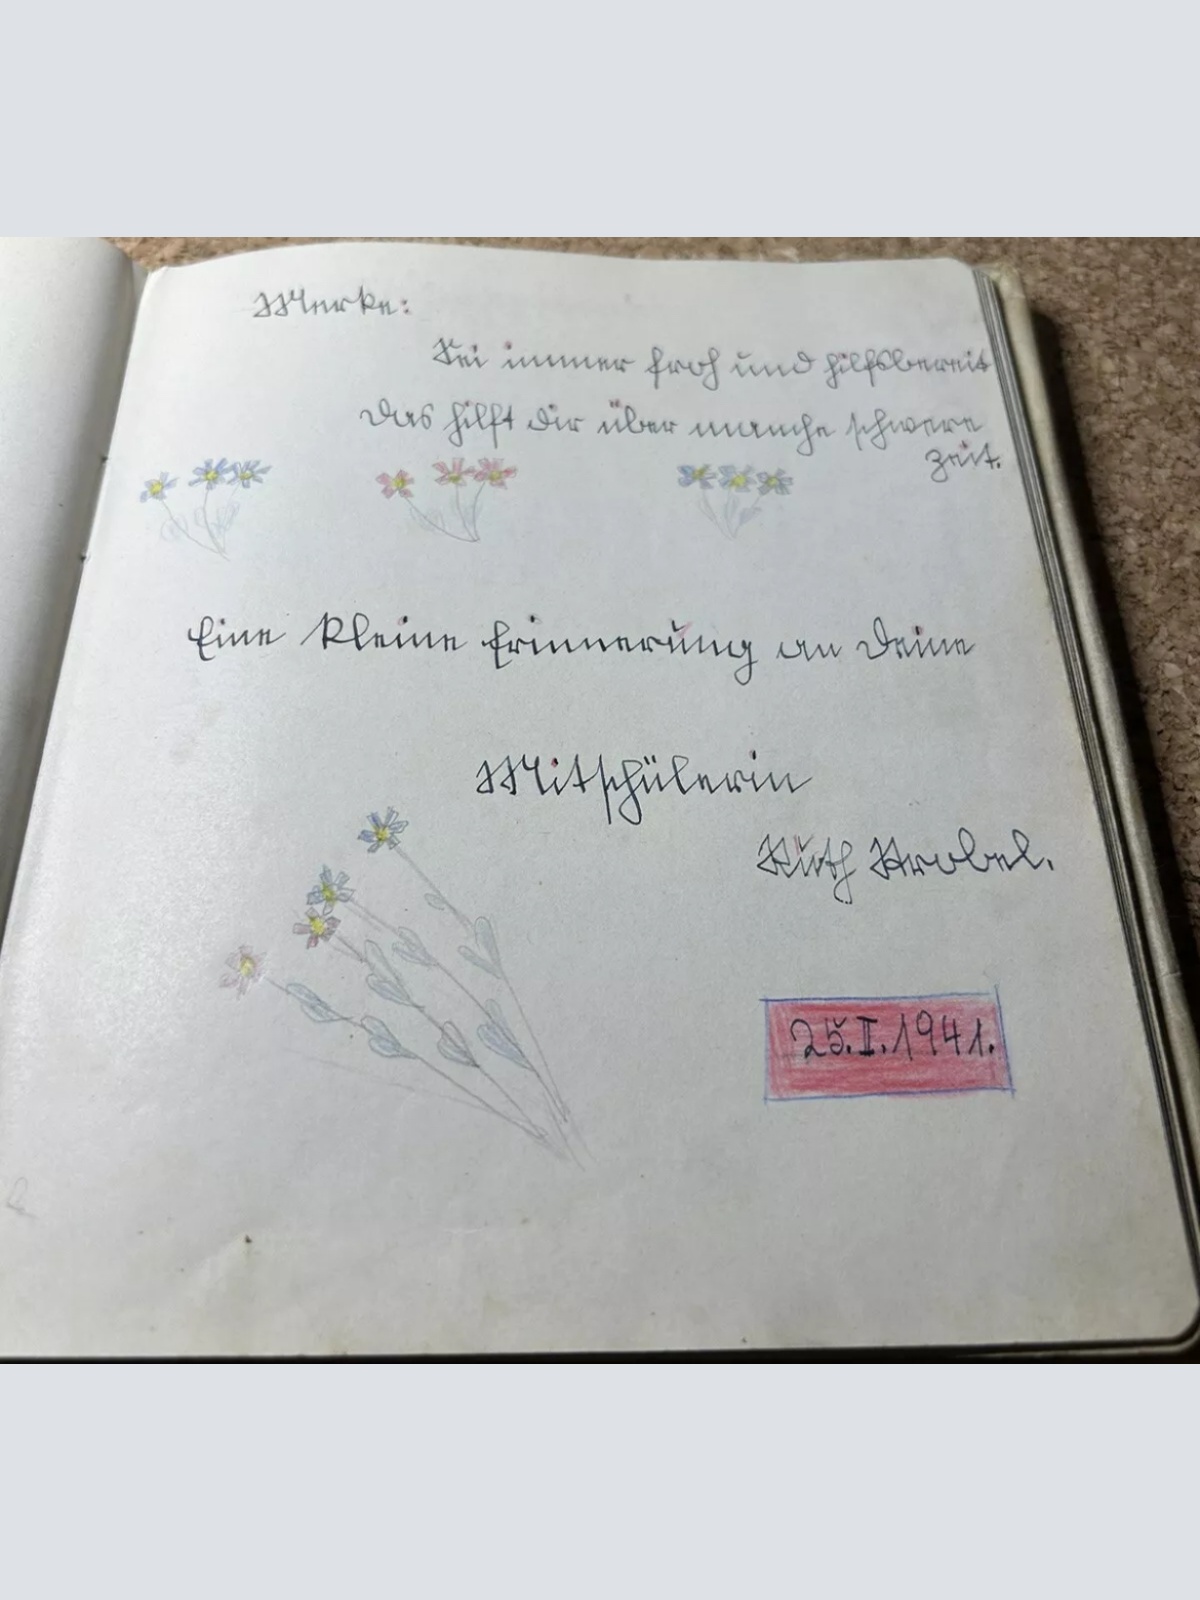 Merke:
Sei immer froh und hilfsbereit
Das hilft dir über manche schwere
Zeit.
Eine kleine Erinnerung an Deine
Mitschülerin
Ruth
25.II.1941.